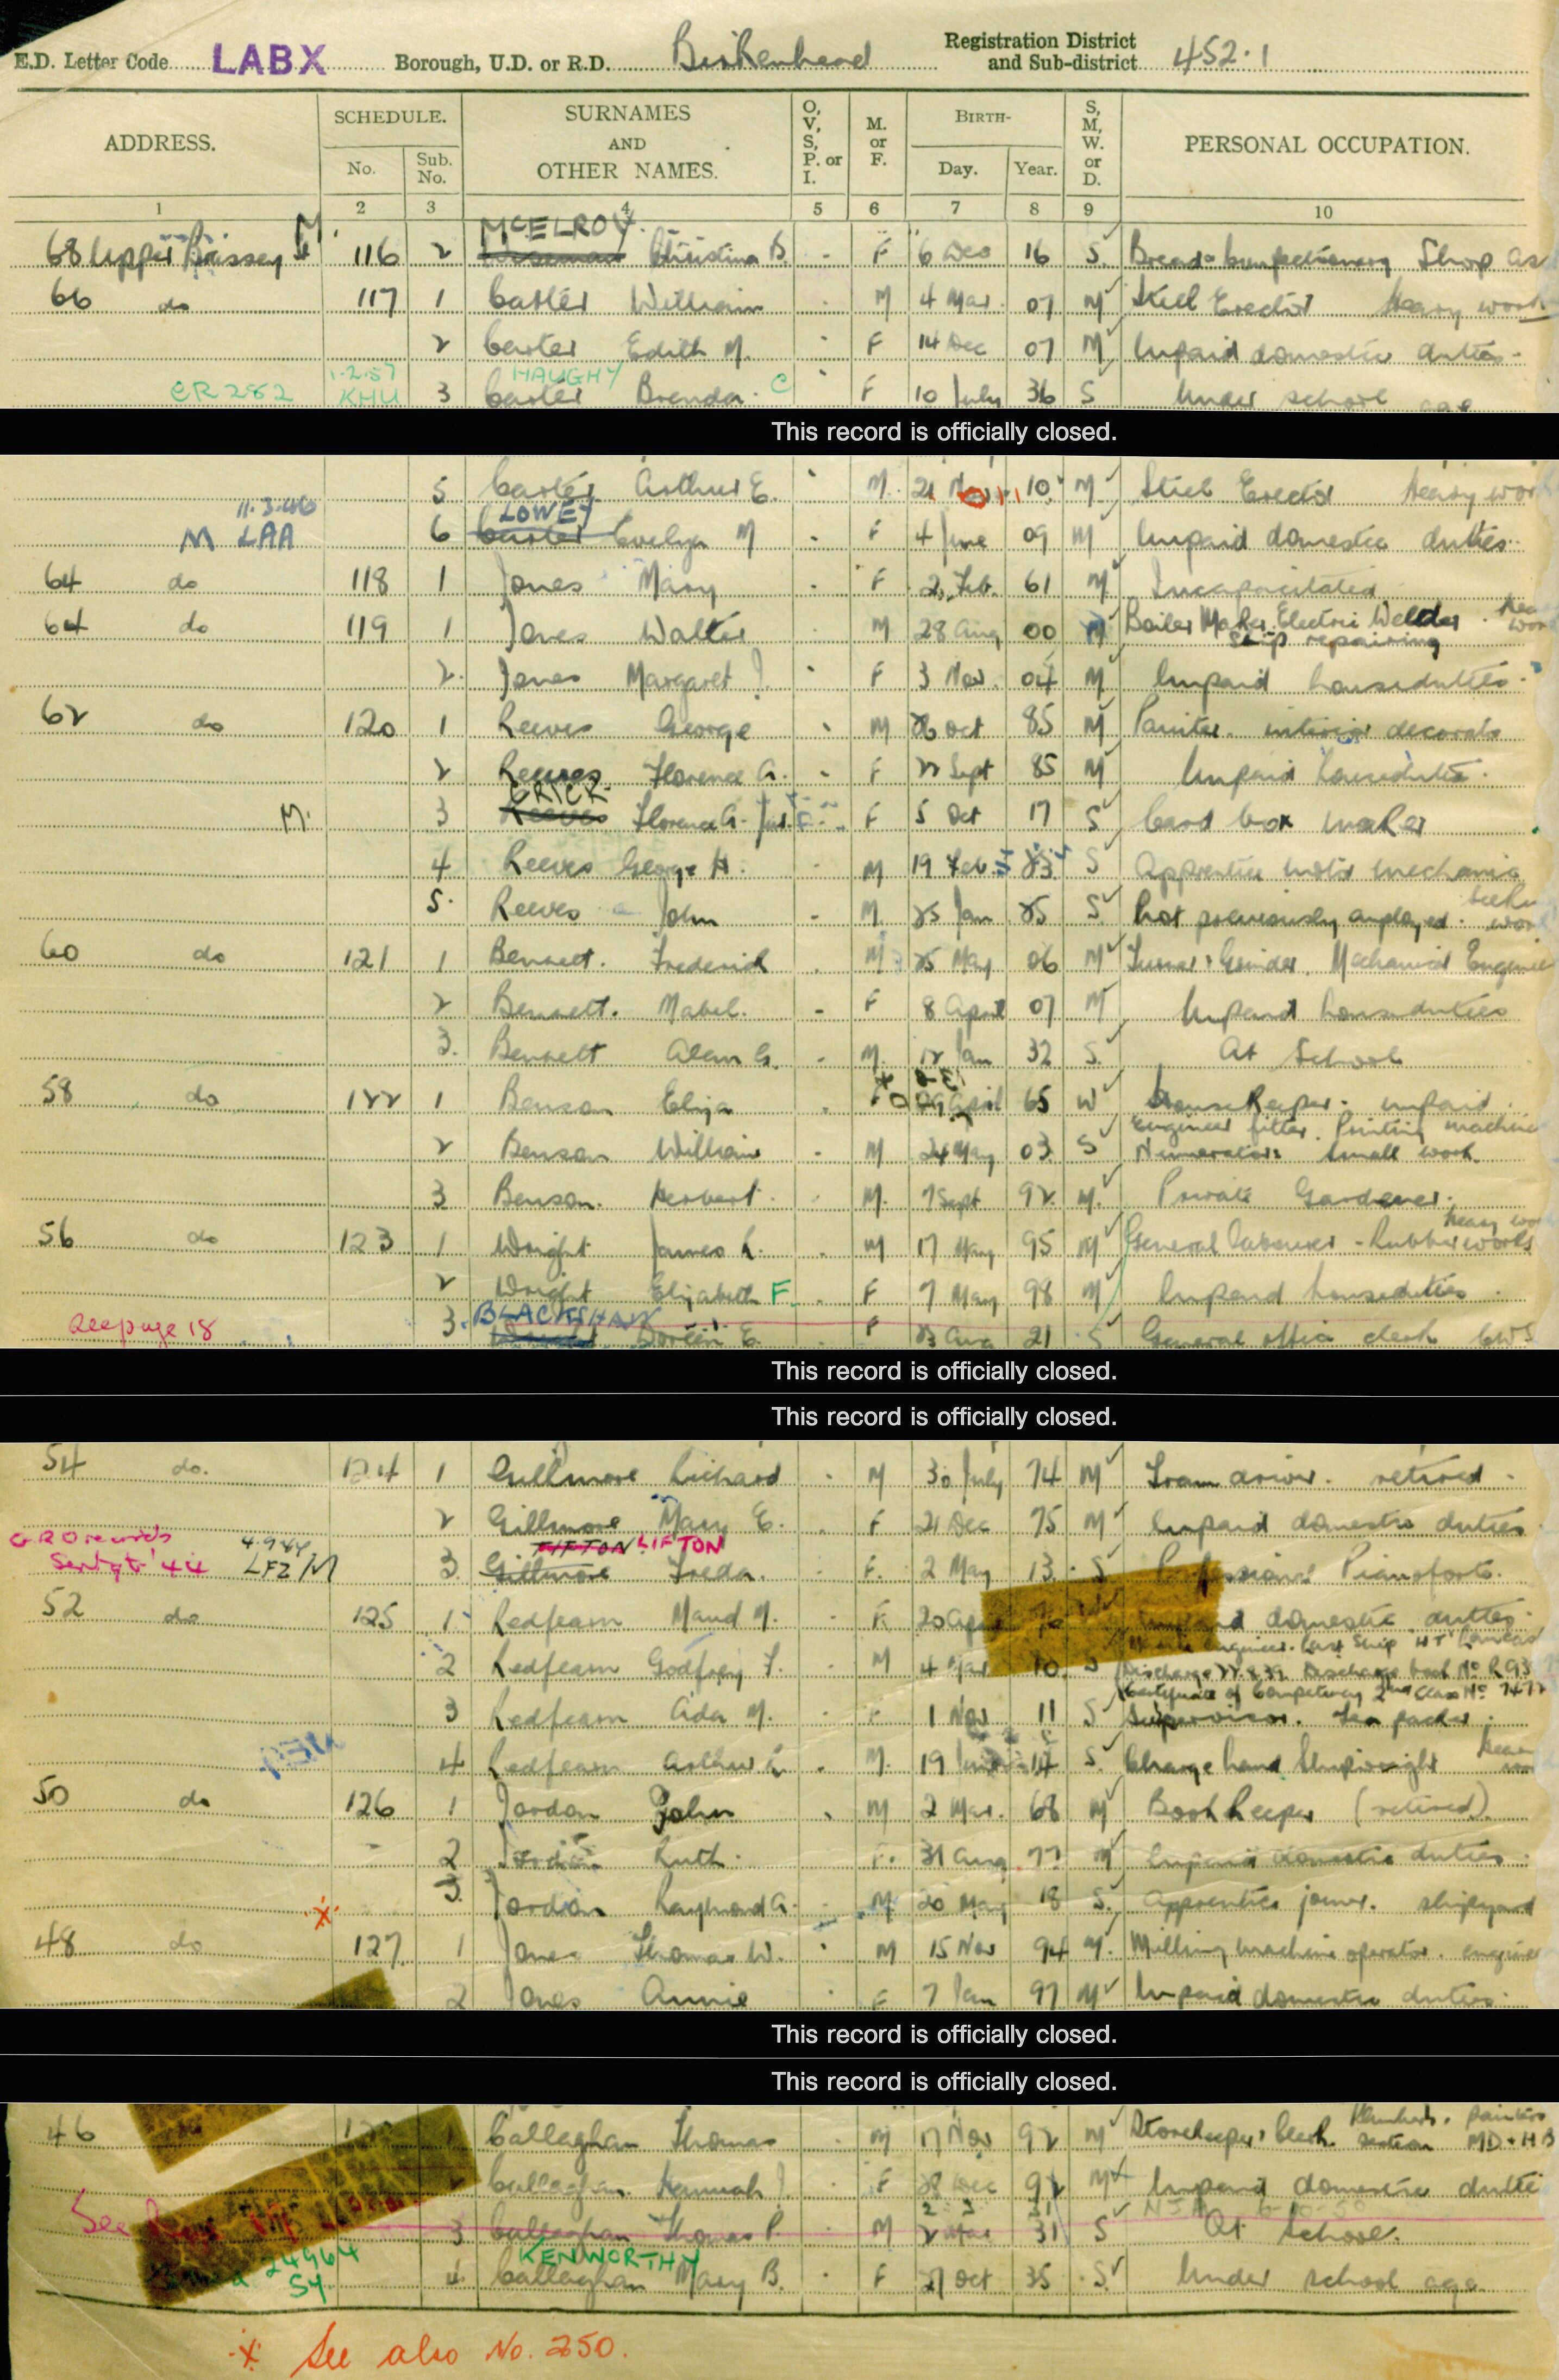 E.D. Letter Code LABX Borough, U.D. or R.D. Birkenhead Registration District and Sub-district 452.1
ADDRESS. SCHEDULE. No. Sub. No. SURNAMES AND OTHER NAMES. O, V, S, P. or I. M. or F. BIRTH- Day. Year. S, M, W. or D. PERSONAL OCCUPATION.
1 2 3 4 5 6 7 8 9 10
McELROY
68 Upper Brassey St M 116 2 Christina B. - F 6 Dec 16 S. Bread & Confectionery Shop as
66 do 117 1 Carter William M 4 Mar 07 M Steel Erector Heavy work
2 Carter Edith M. F 14 Dec 07 M Unpaid domestic duties
1.2.57 HAUGHY
CR 282 KHU 3 Carter Brenda. C F 10 July 36 S Under school age
This record is officially closed.
5 Carter Arthur E. M 21 Nov 11 10 M Steel Erector Heavy work
11.3.46 LOWEY
M LAA 6 Carter Evelyn M - F 4 June 09 M Unpaid domestic duties
64 do 118 1 Jones Mary - F 2 Feb. 61 M Incapacitated
64 do 119 1 Jones Walter M 28 Aug 00 M Boiler Maker Electric Welder
Ship repairing
2 Jones Margaret J F 3 Nov. 04 M Unpaid houseduties
62 do 120 1 Reeves George M 26 Oct 85 M Painter interior decorator
2 Reeves Florence A. - F 22 Sept 85 M Unpaid houseduties
CRICK
M. 3 Reeves Florence A. Jnr F 5 Oct 17 S Card box maker
4 Reeves George H. M 19 Feb 23 S Apprentice motor mechanic
5 Reeves John - M 25 Jan 25 S Not previously employed. Seeking work
60 do 121 1 Bennett. Frederick M 25 May 06 M Turner & Grinder. Mechanical Engineer
2 Bennett. Mabel. - F 8 April 07 M Unpaid houseduties
3. Bennett Alan G. - M. 12 Jan 32 S. At School
58 do 122 1 Benson Eliza F April 65 W Housekeeper. unpaid
Engineer fitter. Printing machine
2 Benson William - M 24 May 03 S Numerators small work.
3 Benson. Herbert. M. 7 Sept 92 M. Private Gardener.
Heavy work
56 do 123 1 Wright James M 17 May 95 M General labourer - Rubber works
2 Wright Elizabeth F F 7 May 98 M Unpaid houseduties
BLACKSHAW
See page 18 3. Doreen E. F 23 Aug 21 S General office clerk CWS
This record is officially closed.
This record is officially closed.
54 do. 124 1 Gillmore Richard - M 30 July 74 M Tram driver. retired
2 Gillmore Mary E. F 21 Dec 75 M Unpaid domestic duties
GRO records 4.9.44 TIFTON LIFTON
Sert qt '44 LFZ M 3. Gillmore Freda. F. 2 May 13 S Professional Pianoforte.
52 do 125 1 Redfearn Maud M. F 20 Apr Unpaid domestic duties
Engineer. Last Ship
2 Redfearn Godfrey F. M 4 Mar 10 S Discharge 22.8.39 Discharge book No R 93
Certificate of Competency 2nd Class No
3 Redfearn Ada M. F 1 Nov 11 S Supervisor. Tea packer
4 Redfearn Arthur M. 19 14 S Charge hand Shipwright
50 do 126 1 Jordan John M 2 Mar. 68 M Book keeper (retired)
2 Jordan Ruth. F. 31 Aug 77 M Unpaid domestic duties
3 Jordan Raymond A. M 20 May 18 S. Apprentice joiner. shipyard
48 do 127 1 Jones Thomas W. M 15 Nov 94 M. Milling machine operator. engineer
2 Jones Annie F 7 Jan 97 M Unpaid domestic duties
This record is officially closed.
This record is officially closed.
46 Callaghan Thomas M 17 Nov 92 M Storekeeper's Clerk Plumbers, Painters section MD & HB
Callaghan Hannah J F 28 Dec 92 M Unpaid domestic duties
See Page 3 Callaghan Thomas P. M 2 Mar 31 S At School.
24964 KENWORTHY
SY 4 Callaghan Mary B. F 27 Oct 35 S Under school age
x See also No. 250.